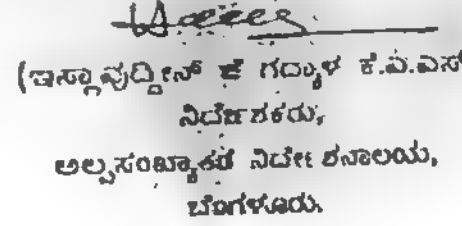 (ಇಸ್ಲಾವುದ್ದೀನ್ ಜೆ ಗದ್ಯಾಳ ಕೆ.ಎ.ಎಸ್
ನಿರ್ದೇಶಕರು,
ಅಲ್ಪಸಂಖ್ಯಾತರ ನಿರ್ದೇಶನಾಲಯ,
ಬೆಂಗಳೂರು.